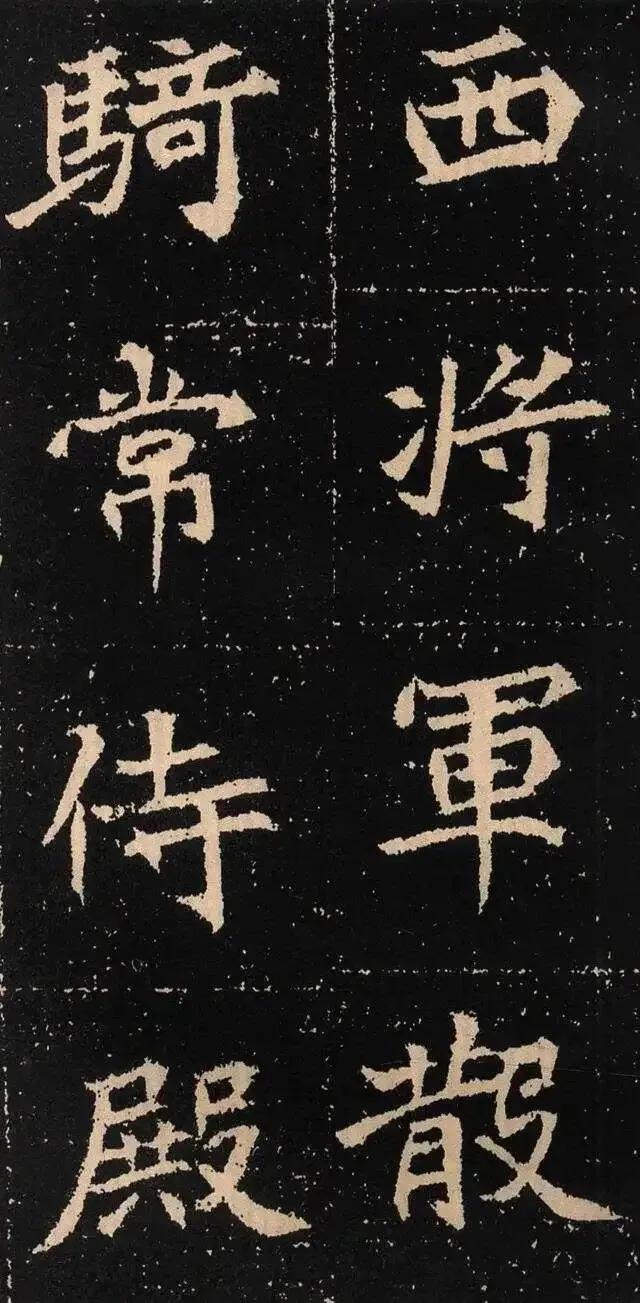 西將軍散
騎常侍殿